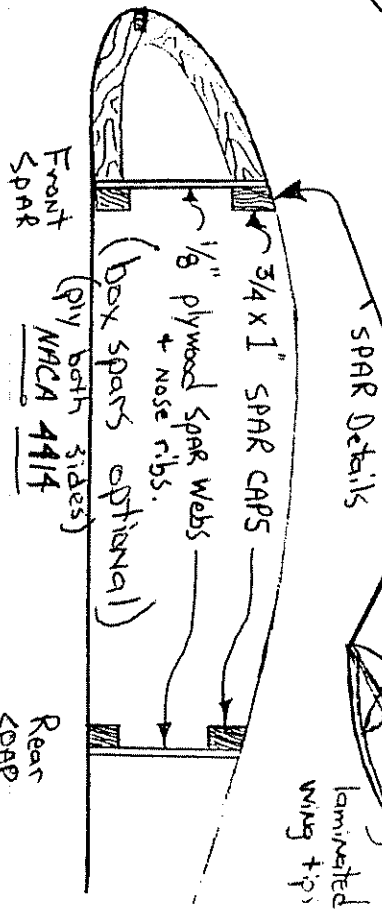 SPAR Details
laminated
wing tips
3/4 x 1" SPAR CAPS
1/8" plywood SPAR Webs
+ nose ribs.
(box spars optional)
(ply both sides)
NACA 4414
Front
SPAR
Rear
SPAR